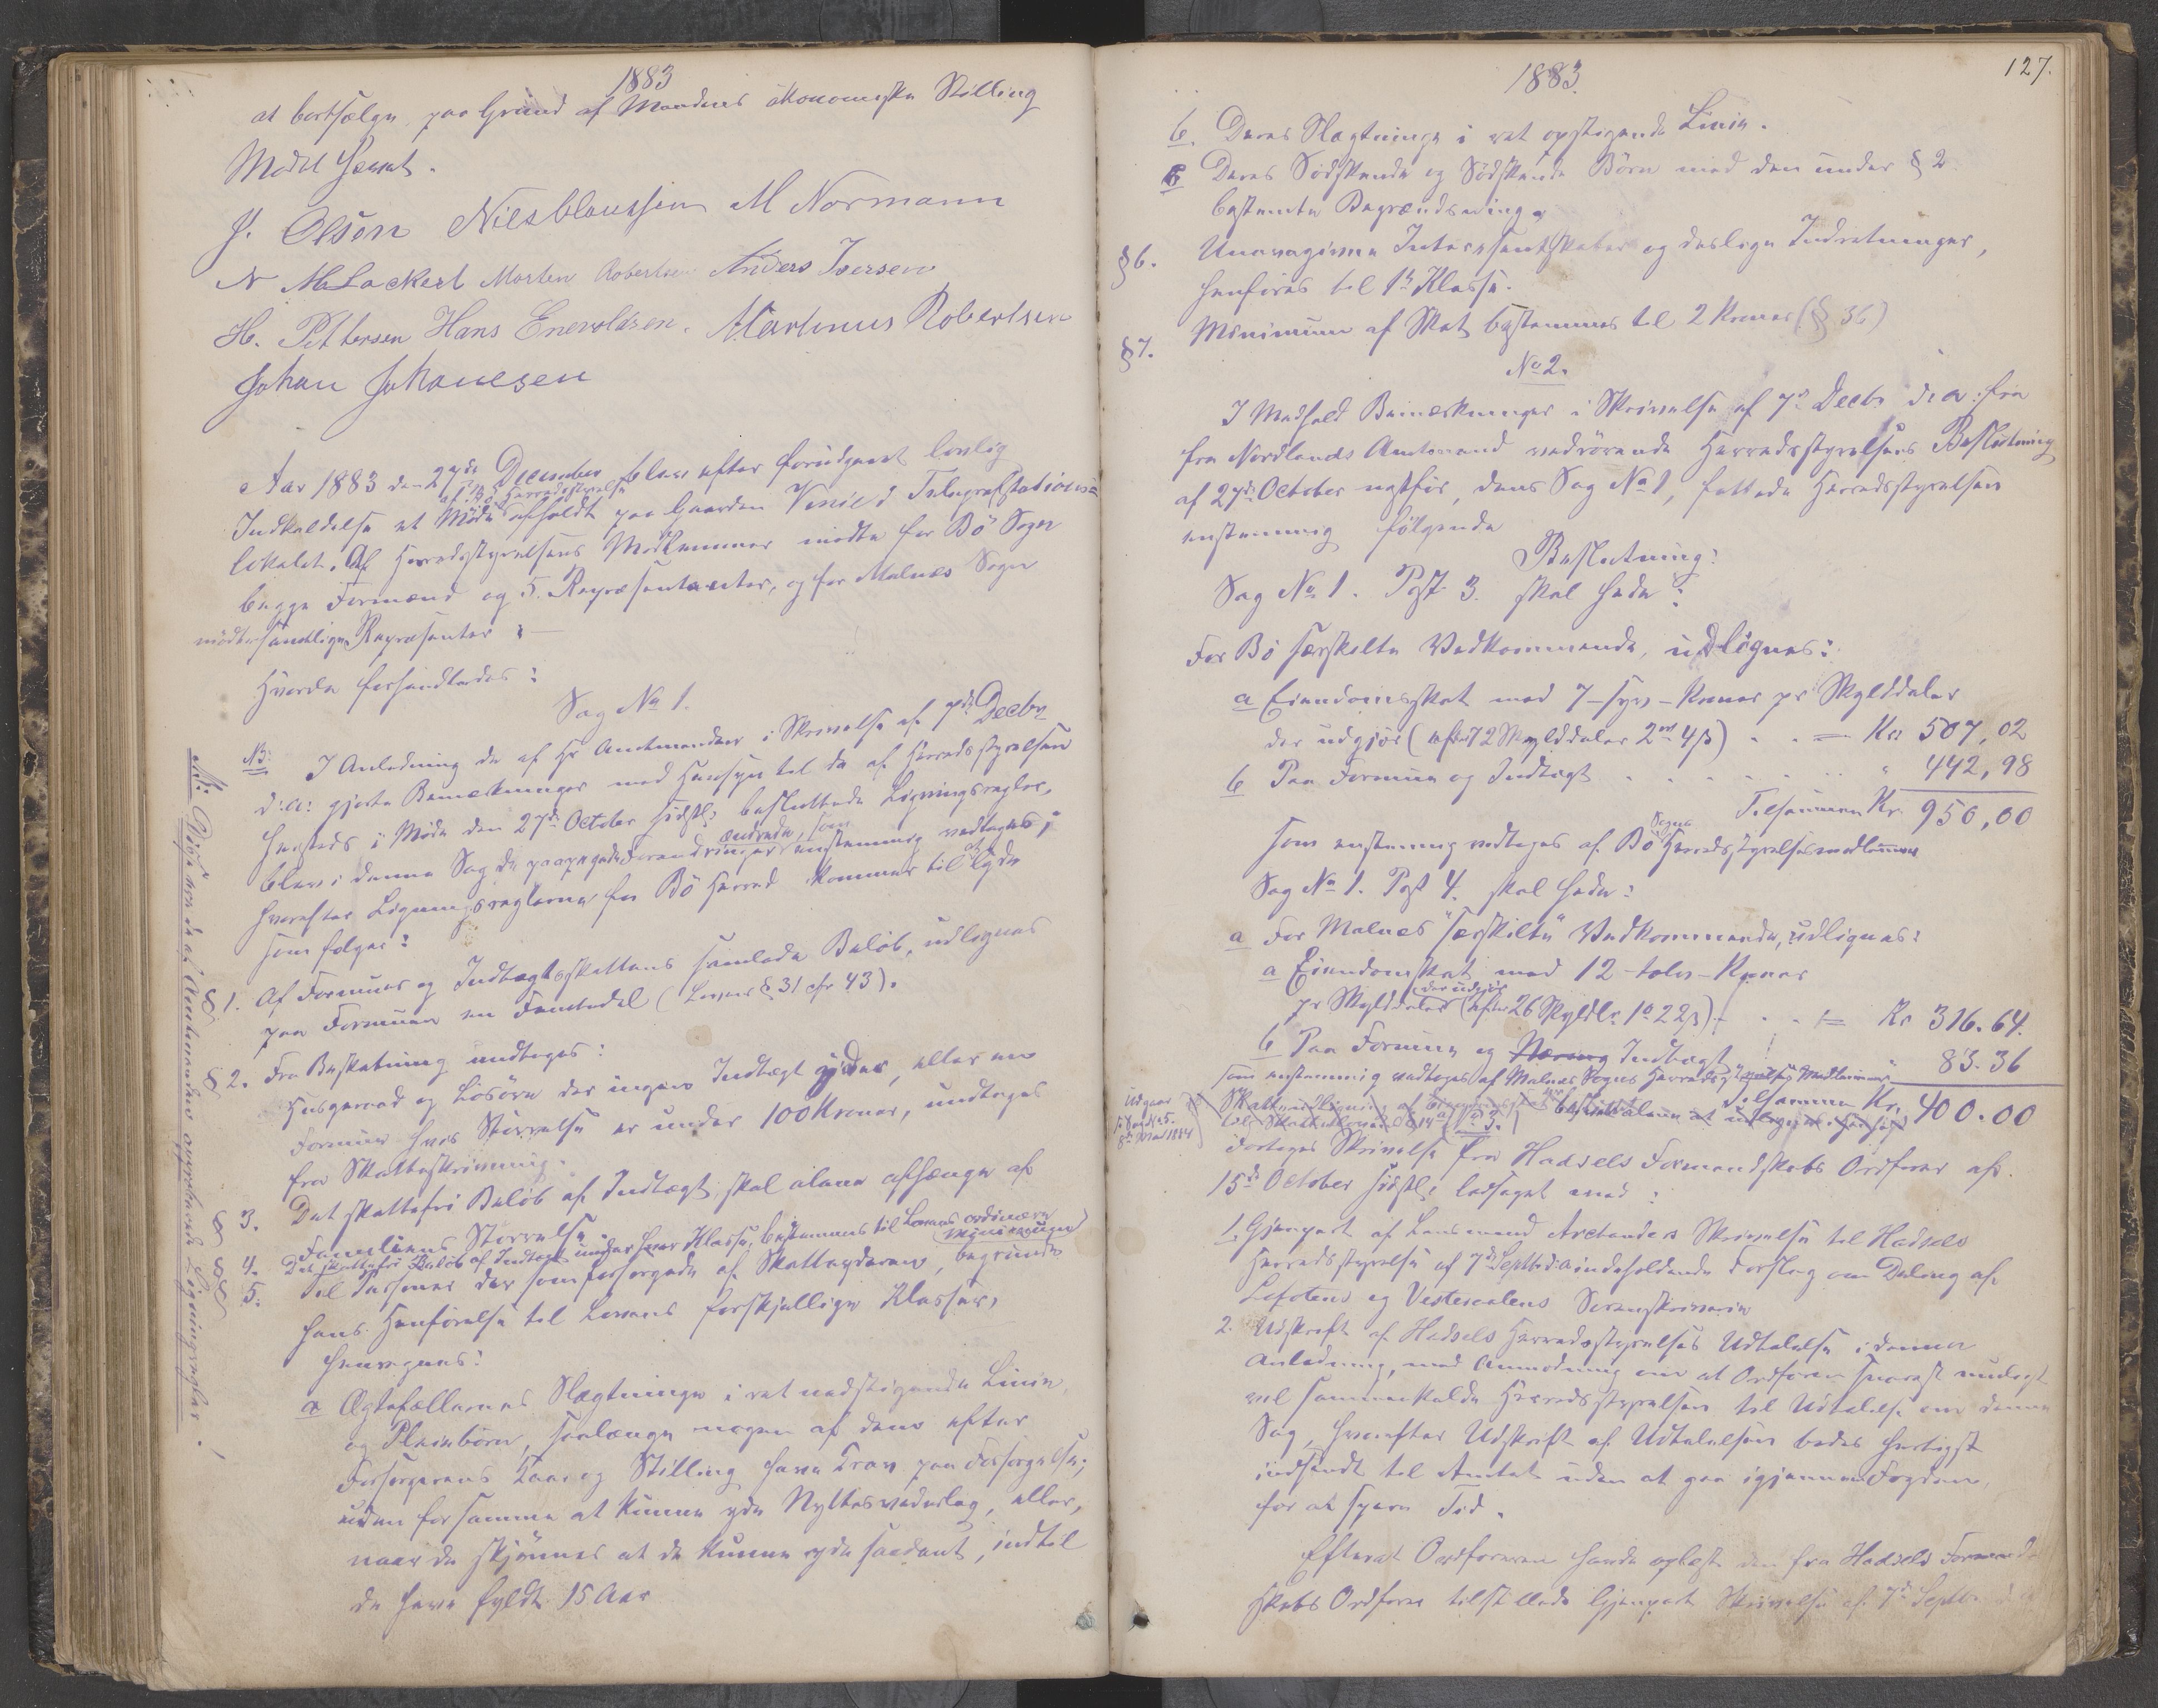 1883
at bortsælge paa Grund af Mandens ökonomiske Stilling
Mödet hævet.
J. Olsen Niels Claussen M Normann
N M Lockert Morten Robertsen Anders Iversen
H. Pettersen Hans Enevoldsen. Martinus Robertsen
Johan Johanesen
Aar 1883 den 27de December blev efter forudgaaet lovlig
Indkaldelse et Möde af Bö Herredsstyrelse afholdt paa Gaarden Vinie i Telegrafstationens
lokalet. Af Herredsstyrelsens Medlemmer mödte for Bö Sogn
begge Formænd og 5. Repræsentanter, og for Malnes Sogn
mödte samtlige Repræsenter :
Hvorda forhandledes :
Sag No 1.
NB: I Anledning de af Hr Amtmanden i Skrivelse af 7de Decbr
d: a: gjorte Bemærkninger med Hensyn til de af Herredsstyrelsen
hersteds i Möde den 27de October sidstl: besluttede Ligningsregler,
blev i denne Sag de paapegede Forandringer ændrede, som enstemmig vedtoges;
hvorefter Ligningsreglerne for Bö Herred kommer til at lyde
som følger :
§ 1. Af Formues og Indtægtsskattens samlede Belöb, udlignes
paa Formuen en Femtedel (Lovens § 31 cfr 43).
§ 2. Fra Beskatning undtages :
Husgeraad og Lösöre der ingen Indtægt yder, eller en
Formue hvis Störrelse er under 100 Kroner, undtages
fra Skatteskrivning.
§ 3. Det skattefri Belöb af Indtægt, skal alene afhænge af
Familiens Störrelse
§ 4. Det skattefri Belöb af Indtægt under hver Klasse, bestemmes til Lovens ordinære (Minimumgen)
§ 5. Til Personer der som forsörgede af Skatteyderen, begrunde
hans Henförelse til Lovens forskjellige Klasser,
henregnes :
a Ægtefællernes Slægtninge i ret nedstigende Linie,
og Pleiebörn, saalænge nogen af dem efter
Forsörgerens Kaar og Stilling have Krav paa Forsörgelse;
uden for samme at kunne yde Nyttesvederlag, eller,
naar de skjönnes at de kunne yde saadant, indtil
de have fyldt 15 Aar
NB: Disse her de af Amtmanden approberede Ligningsregler.
1883.
127.
b. Deres Slægtninge i ret opstigende Linie.
c Deres Södskende og Södskende Börn med den under § 2
bestemte Begrændsning.
§ 6. Unavngivne Interessentskaber og deslige Indretninger,
henføres til 1ste Klasse.
§ 7. Minimum af Skat bestemmes til 2 Kroner (§ 36)
No 2.
I Medhold Bemærkninger i Skrivelse af 7de Decbr d. a. fra
fra Nordlands Amtmand vedrörende Herredsstyrelsens Beslutning
af 27de October nestför, dens Sag No 1, fattede Herredsstyrelsen
enstemmig følgende
Beslutning :
Sag No 1. Post 3. skal hede :
For Bö særskilte Vedkommende, udlignes :
a Eiendomsskat med 7 - syv - Kroner pr Skylddaler
der udgjör (efter 72 Skylddaler 2 ort 4 ß) . . = Kr 507,02
b Paa Formue og Indtægt . . . . . . " 442,98
Tilsammen Kr. 950,00
som enstemmig vedtoges af Bö Sogns Herredsstyrelsesmedlemmer
Sag No 1. Post 4. skal hede :
a For Malnes "særskilte" Vedkommende, udlignes :
a Eiendomsskat med 12 - tolv - Kroner
pr Skylddaler der udgjör (efter 26 Skyldlr. 1 o 22 ß) . . . = Kr 316.64.
b Paa Formue og Næring Indtægt " 83.36
som enstemmig vedtoges af Malnes Sogns Herredsstyrelses Medlemmer
Tilsammen Kr. 400.00
Udgaar
No 3.
Foretoges Skrivelse fra Hadsels Formandskabs Ordförer af
15de October sidstl: ledsaget med :
1. Gjenpart af Lensmand Arctanders Skrivelse til Hadsels
Herredsstyrelse af 7de Septbr d. a indeholdende Forslag om Deling af
Lofotens og Vesteraalens Sorenskriverie
2. Udskrift af Hadsels Herredsstyrelses Udtalelse i denne
Anledning, med Anmodning om at Ordföreren snarest muligt
vil sammenkalde Herredsstyrelsen til Udtalelse om denne
Sag, hvorefter Udskrift af Udtalelsen bedes hurtigst
indsendt til Amtet uden at gaa igjennem Fogden,
for at spare Tid.
Efterat Ordföreren havde oplæst den fra Hadsels Formand
skabs Ordförer tilstillede Gjenpart Skrivelse af 7de Septbr